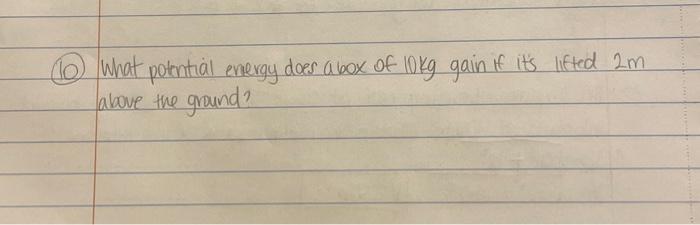 10 What potential energy does a box of 10kg gain if it's lifted 2m
above the ground?